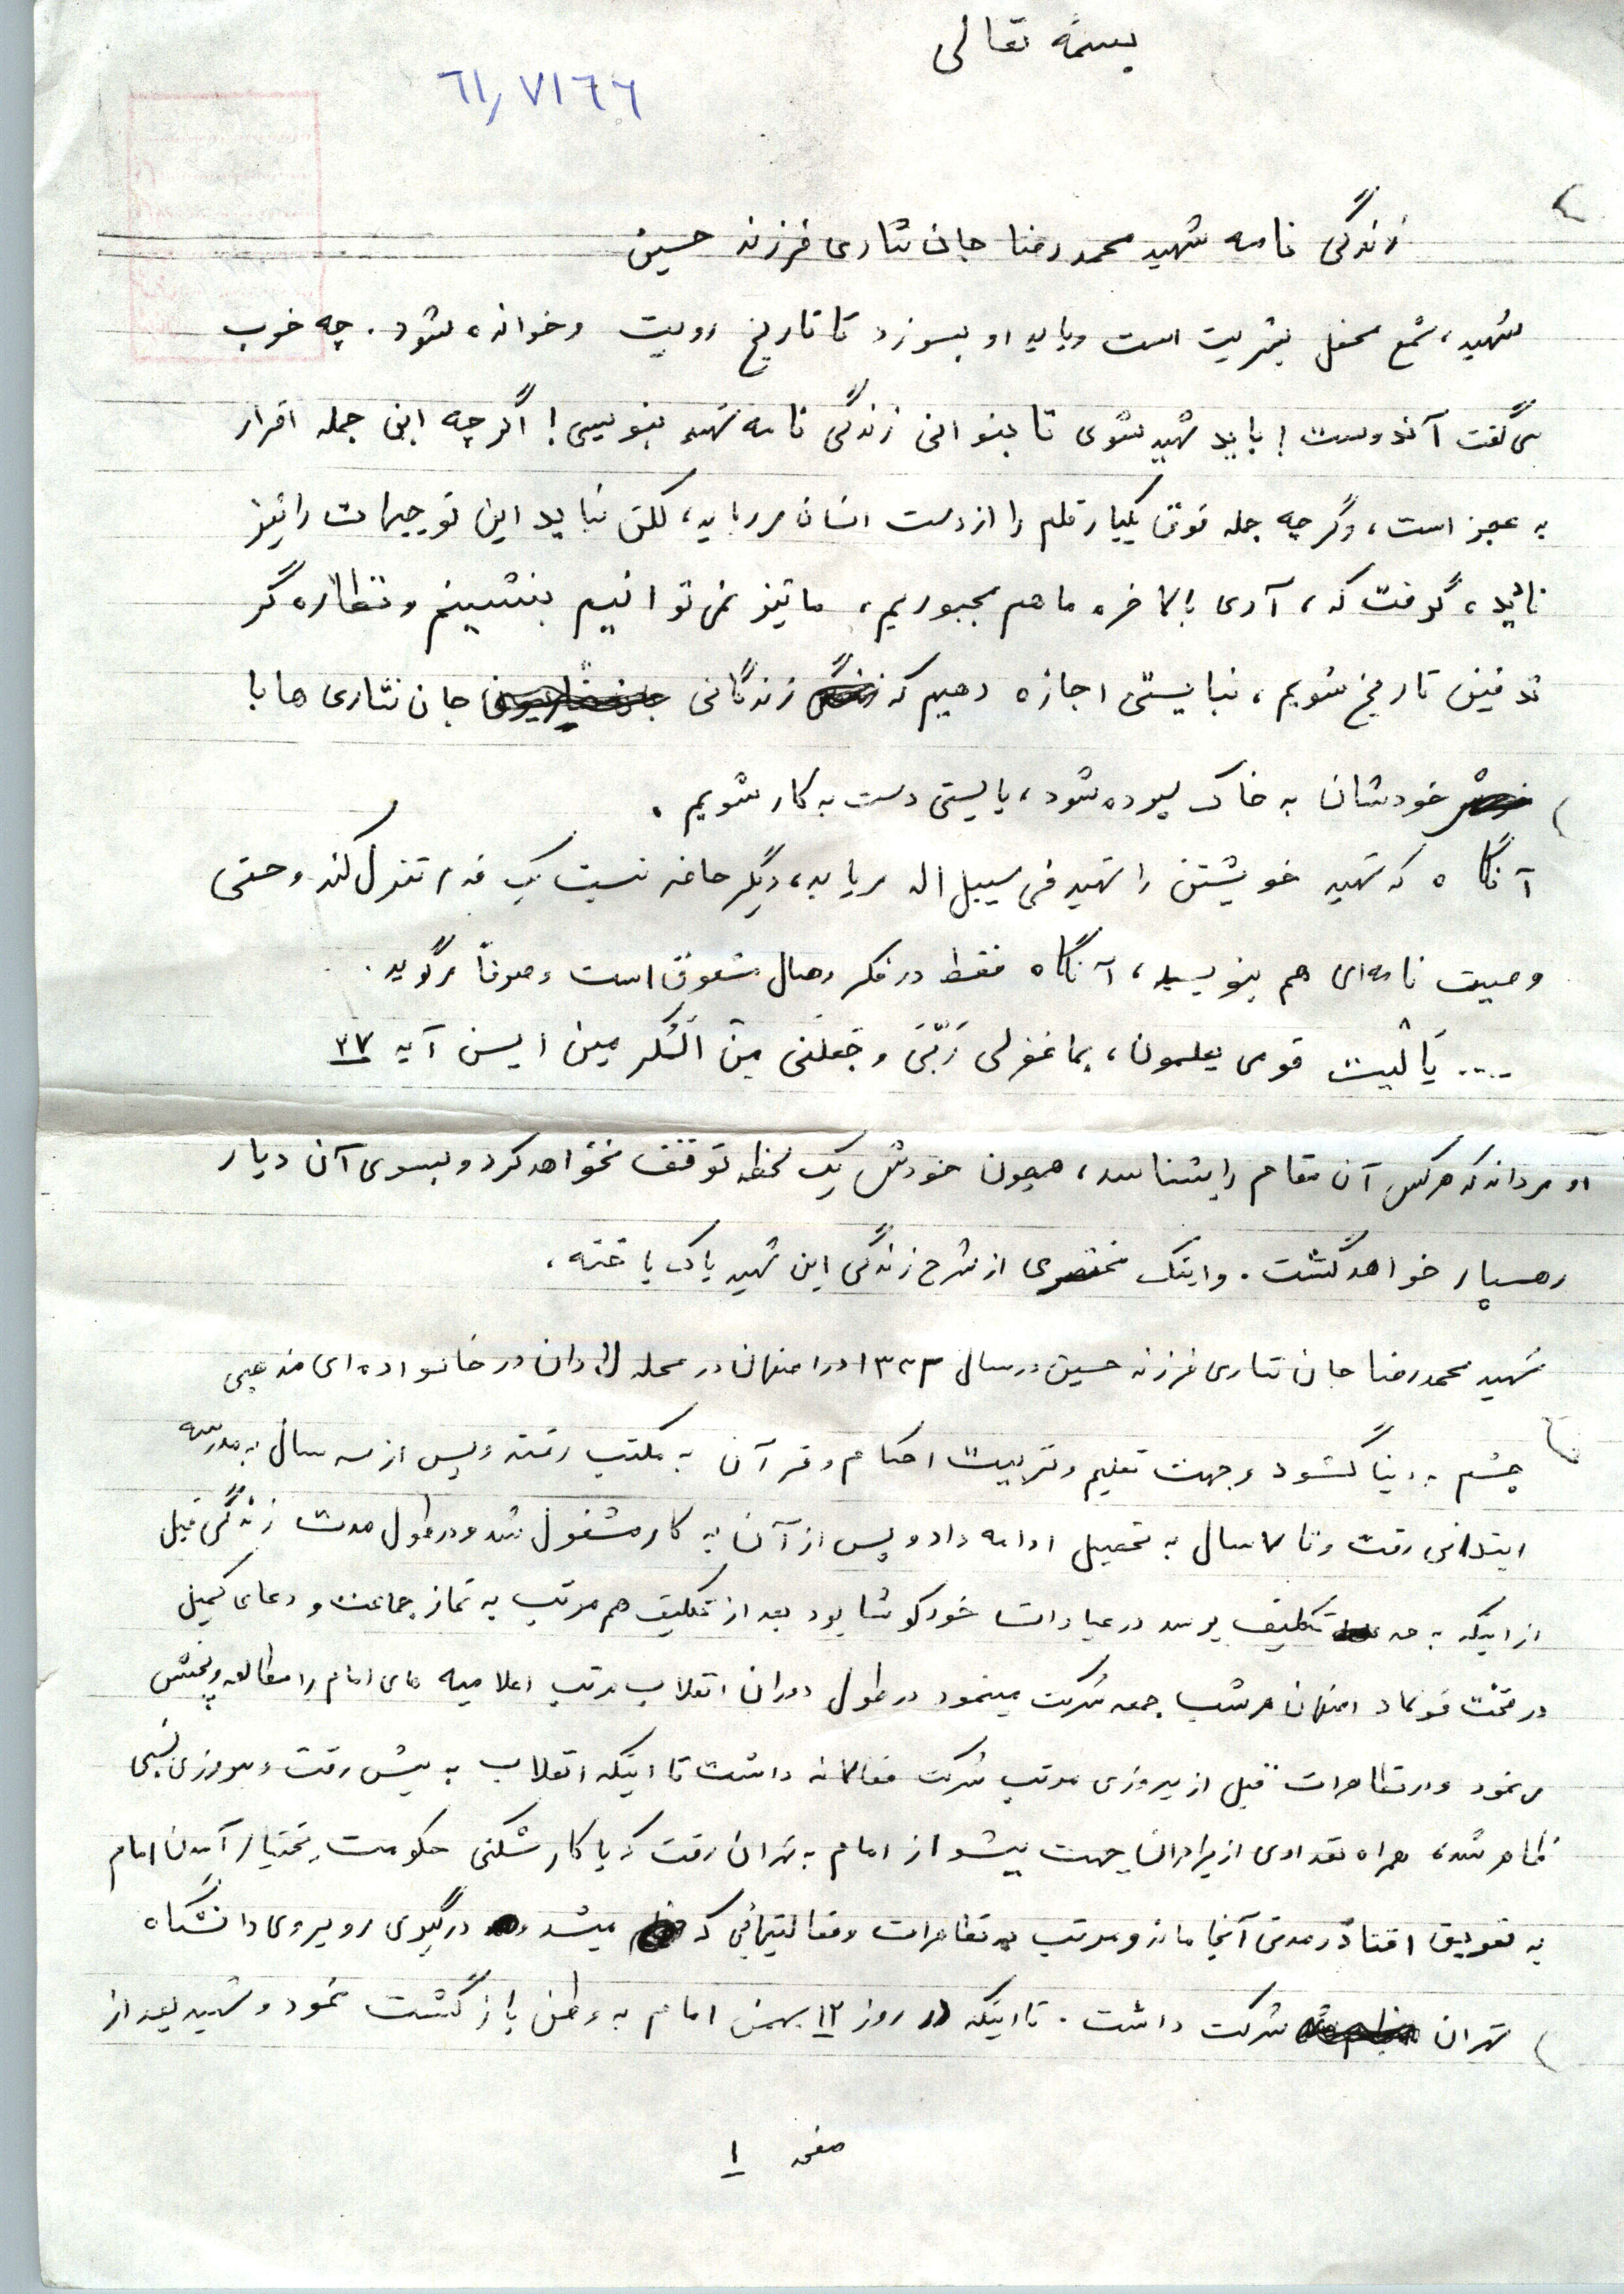 بسمه تعالی
٦١٫٧١٦٦
زندگی نامه شهید محمد رضا جان نثاری فرزند حسین
شهید، شمع محفل بشریت است و باید او بسوزد تا تاریخ رویت و خوانده شود. چه خوب
می گفت آندوست! باید شهید شوی تا بتوانی زندگی نامه شهید بنویسی! اگر چه این جمله اقرار
به عجز است، وگر چه جمله فوق یکبار قلم را از دست انسان میرباید، لکن نباید این توجیهات را نیز
نادیده گرفت که، آری بالاخره ما هم مجبوریم، ما نیز نمی توانیم بنشینیم و نظاره گر
تدفین تاریخ شویم، نبایستی اجازه دهیم که زندگانی جان نثاری ها با
خودشان به خاک سپرده شود، بایستی دست به کار شویم.
آنگاه که شهید خویشتن را شهید فی سبیل اله می یابد، دیگر حاضر نیست یک قدم تنزل کند و حتی
وصیت نامه ای هم بنویسد، آنگاه فقط در فکر وصال معشوق است و صرفاً میگوید.
.... یَا لَیت قومی یعلمون، بما غفرلی رَبّی وَ جَعَلَنی مِنَ اَلمُکرمین ایس آیه ۲۷
او میداند که هرکس آن مقام را بشناسد، همچون خودش یک لحظه توقف نخواهد کرد و بسوی آن دیار
رهسپار خواهد گشت. و اینک مختصری از شرح زندگی این شهید پاک باخته.
شهید محمد رضا جان نثاری فرزند حسین در سال ۱۳۳۳ در اصفهان در محله لادان در خانواده ای مذهبی
چشم به دنیا گشود و جهت تعلیم و تربیت احکام و قرآن به مکتب رفته و پس از سه سال به مدرسه
ابتدائی رفت و تا ۷ سال به تحصیل ادامه داد و پس از آن به کار مشغول شد و در طول مدت زندگی قبل
از اینکه به حد تکلیف برسد در عبادات خود کوشا بود بعد از تکلیف هم مرتب به نماز جماعت و دعای کمیل
در تخت فولاد اصفهان هر شب جمعه شرکت مینمود در طول دوران انقلاب مرتب اعلامیه های امام را مطالعه و پخش
می نمود و در تظاهرات قبل از پیروزی مرتب شرکت فعالانه داشت تا اینکه انقلاب به پیش رفت و پیروزی نسبی
ظاهر شد، همراه تعدادی از برادران جهت پیشواز امام به تهران رفت که با کار شکنی حکومت بختیار آمدن امام
به تعویق افتاد. مدتی آنجا ماند و مرتب به تظاهرات و فعالیتهائی که میشد و درگیری روبروی دانشگاه
تهران شرکت داشت. تا اینکه در روز ۱۲ بهمن امام به وطن بازگشت نمود و شهید بعد از
صفحه ۱